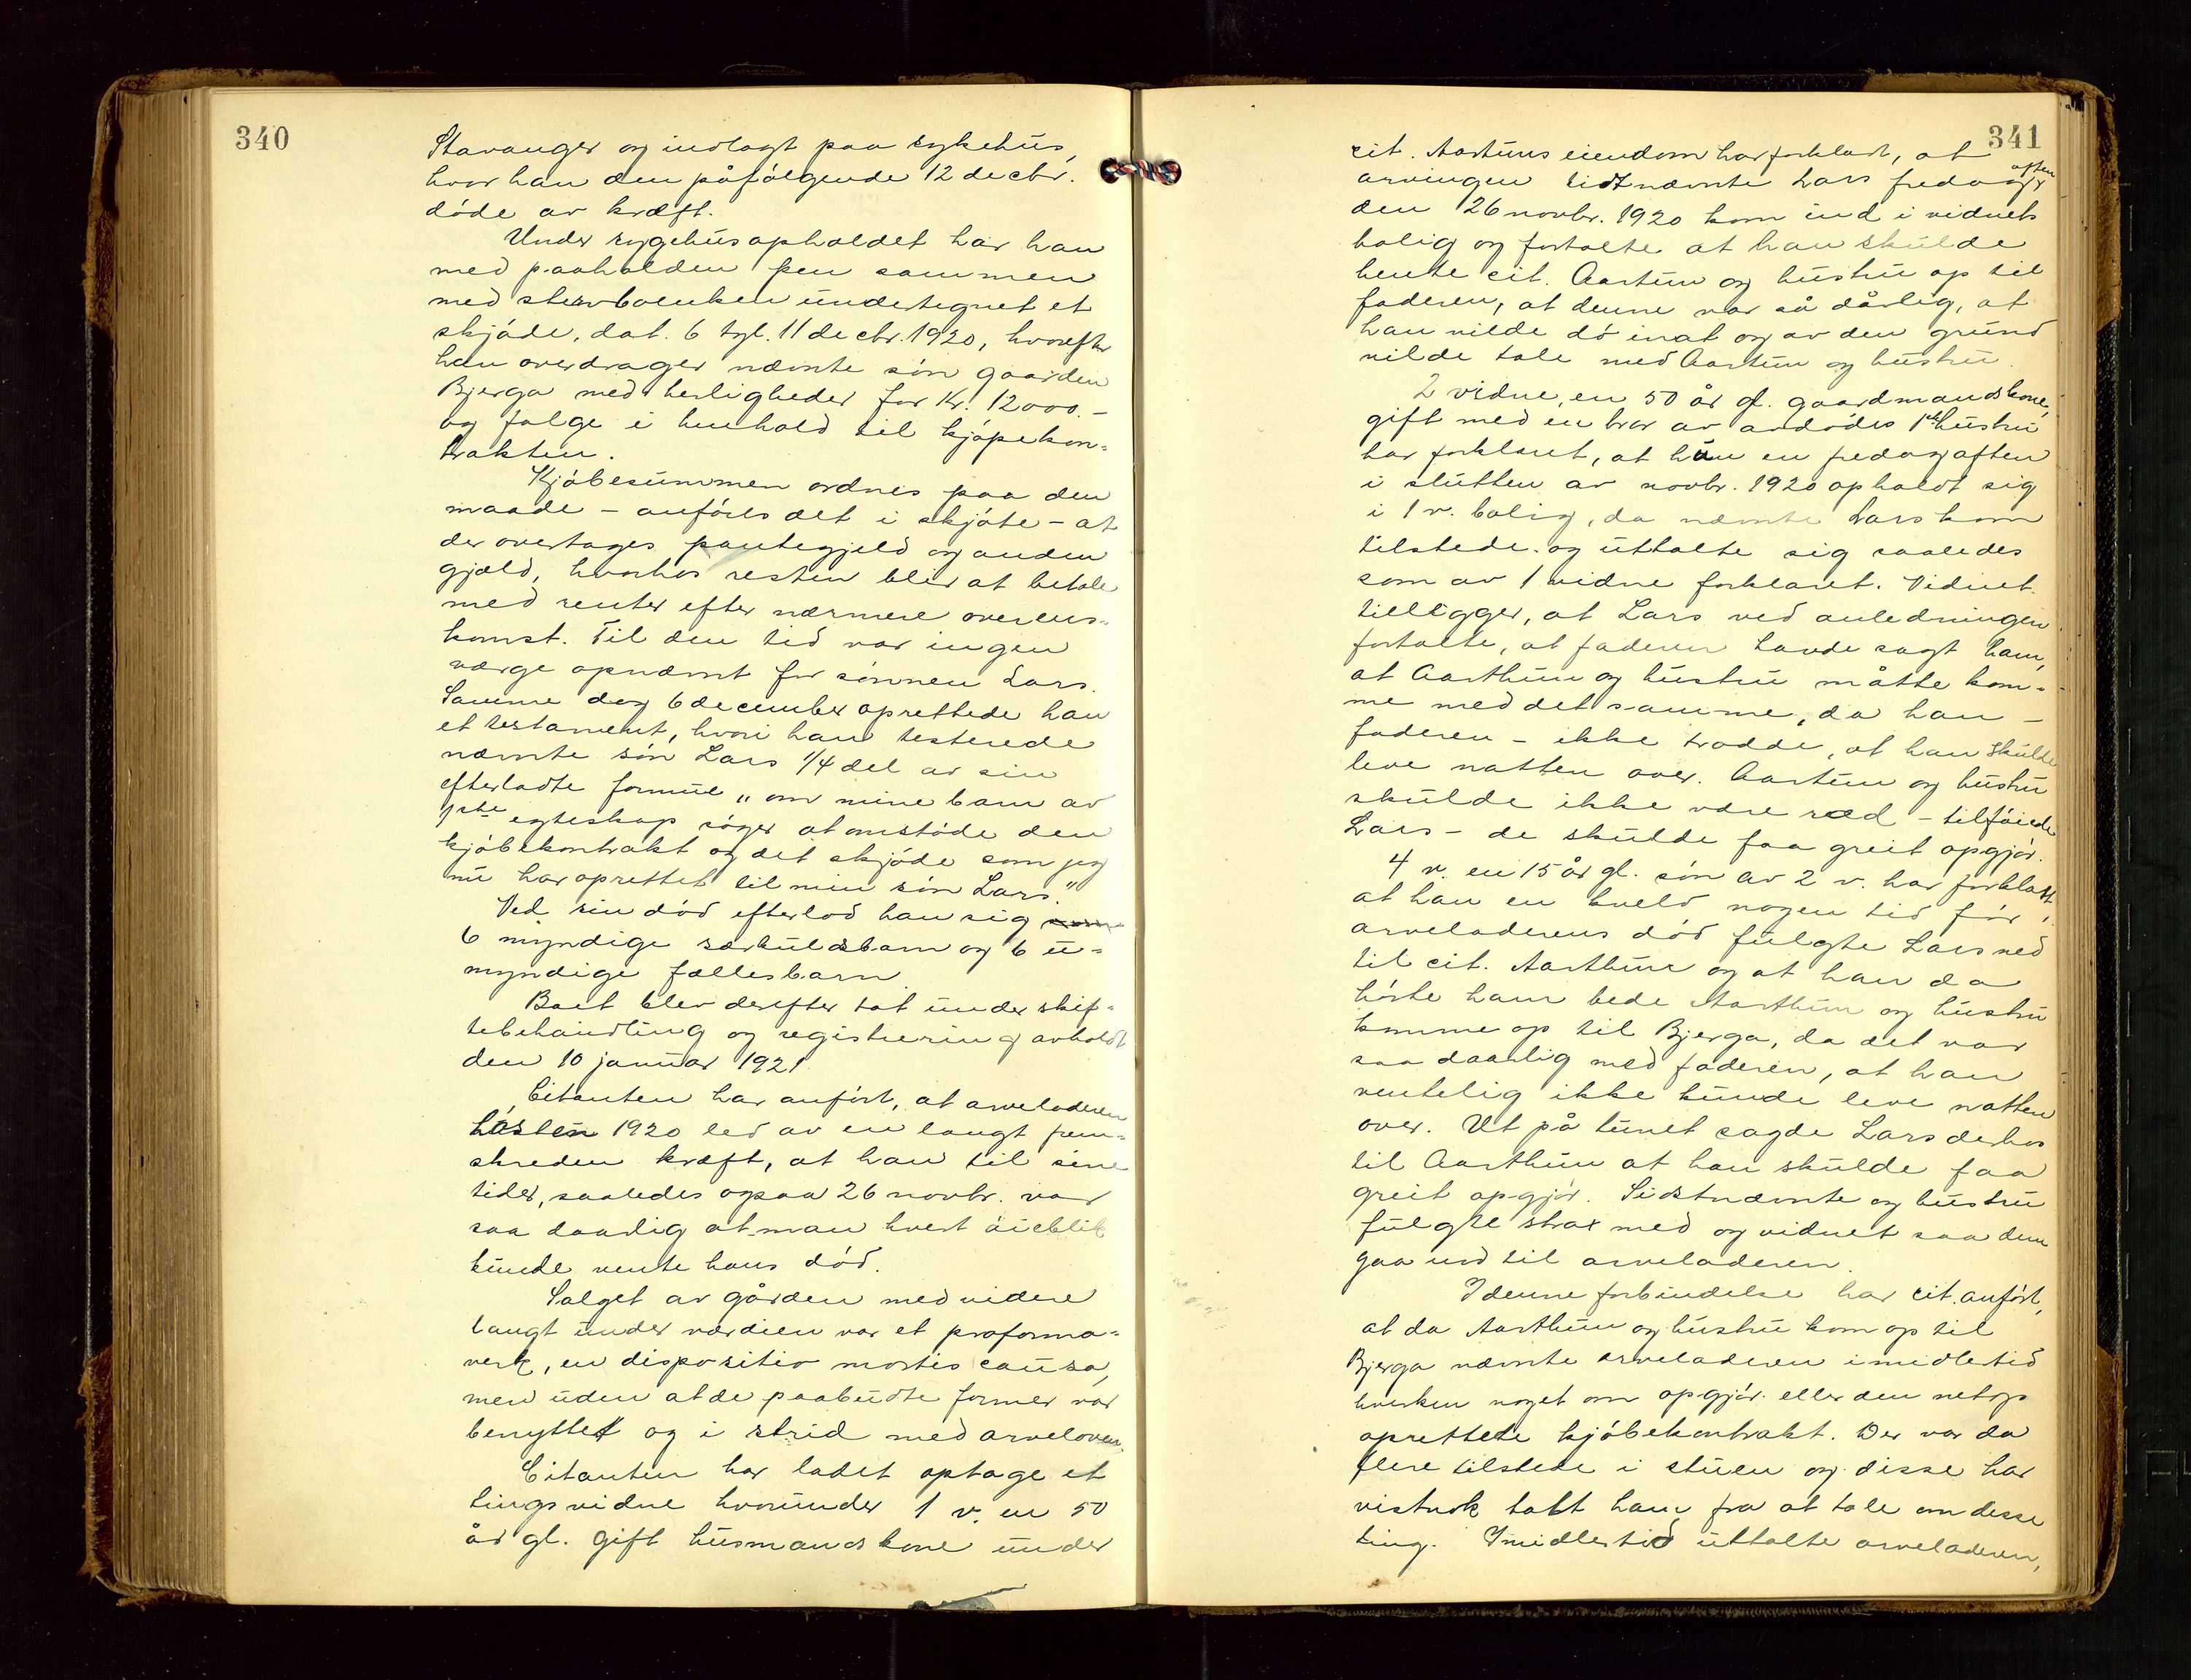 340
Stavanger og indlagt paa sykehus,
hvor han den påfølgende 12 decbr.
døde av kræft.
Under sygehusopholdet har han
med paaholden pen sammen
med stervboenken undertegnet et
skjøde, dat. 6 tgl. 11 decbr. 1920, hvorefter
han overdrager nævnte søn gaarden
Bjerga med herligheder for Kr. 12000.-
og følge i henhold til kjøpekon-
trakten.
Kjøbesummen ordnes paa den
maade - anføres det i skjøte - at
der overtages pantegjeld og anden
gjæld, hvorhos resten blir at betale
med renter efter nærmere overens-
komst. Til den tid var ingen
værge opnævnt for sønnen Lars.
Samme dag 6 december oprettede han
et testament, hvori han testerede
nævnte søn Lars 1/4 del av sin
efterladte formue "om mine barn av
1ste egteskap søger at omstøde den
kjøbekontrakt og det skjøde som jeg
nu har oprettet til min søn Lars."
Ved sin død efterlod han sig
6 myndige særkuldsbarn og 6 u-
myndige fællesbarn.
Boet blev derefter tat under skif-
tebehandling og registrering avholdt
den 10 januar 1921.
Citanten har anført, at arveladeren
høsten 1920 led av en langt frem-
skreden kræft, at han til sine
tider, saaledes ogsaa 26 novbr. var
saa daarlig at man hvert øieblik
kunde vente hans død.
Salget av gården med videre
langt under værdien var et proforma-
verk, en dispositio mortis causa,
men uden at de paabudte former var
benyttet og i strid med arveloven.
Citanten har ladet optage et
tingsvidne hvorunder 1 v. en 50
år gl. gift husmandskone under
341
cit. Aartuns eiendom har forklart, at
arvingen sidtnævnte Lars fredag aften
den 26 novbr. 1920 kom ind i vidnets
bolig og fortalte at han skulde
hente cit. Aartun og hustru op til
faderen, at denne var så dårlig, at
han vilde dø inat og av den grund
vilde tale med Aartun og hustru.
2 vidne, en 50 år gl. gaardmandskone,
gift med en bror av avdødes 1ste hustru
har forklaret, at hun en fredag aften
i slutten av novbr. 1920 opholdt sig
i 1 v. bolig, da nævnte Lars kom
tilstede og uttalte sig saaledes
som av 1 vidne forklaret. Vidnet
tillægger, at Lars ved anledningen
fortalte, at faderen havde sagt ham,
at Aarthun og hustru måtte kom-
me med det samme, da han -
faderen - ikke trodde, at han skulde
leve natten over. Aartun og hustru
skulde ikke være ræd - tilføiede
Lars - de skulde faa greit opgjør.
4 v. en 15 år gl. søn av 2 v. har forklart,
at han en kveld nogen tid før
arveladerens død fulgte Lars ned
til cit. Aarthun og at han da
hørte ham bede Aarthun og hustru
komme op til Bjerga, da det var
saa daarlig med faderen, at han
ventelig ikke kunde leve natten
over. Ut på tunet sagde Lars derhos
til Aarthun at han skulde faa
greit opgjør. Sidstnævnte og hustru
fulgte strax med og vidnet saa dem
gaa ind til arveladeren.
I denne forbindelse har cit. anført,
at da Aarthun og hustru kom op til
Bjerga nævnte arveladeren imidlertid
hverken noget om opgjør eller den netop
oprettede kjøbekontrakt. Der var da
flere tilstede i stuen og disse har
vistnok holdt ham fra at tale om desse
ting. Imidlertid uttalte arveladeren,